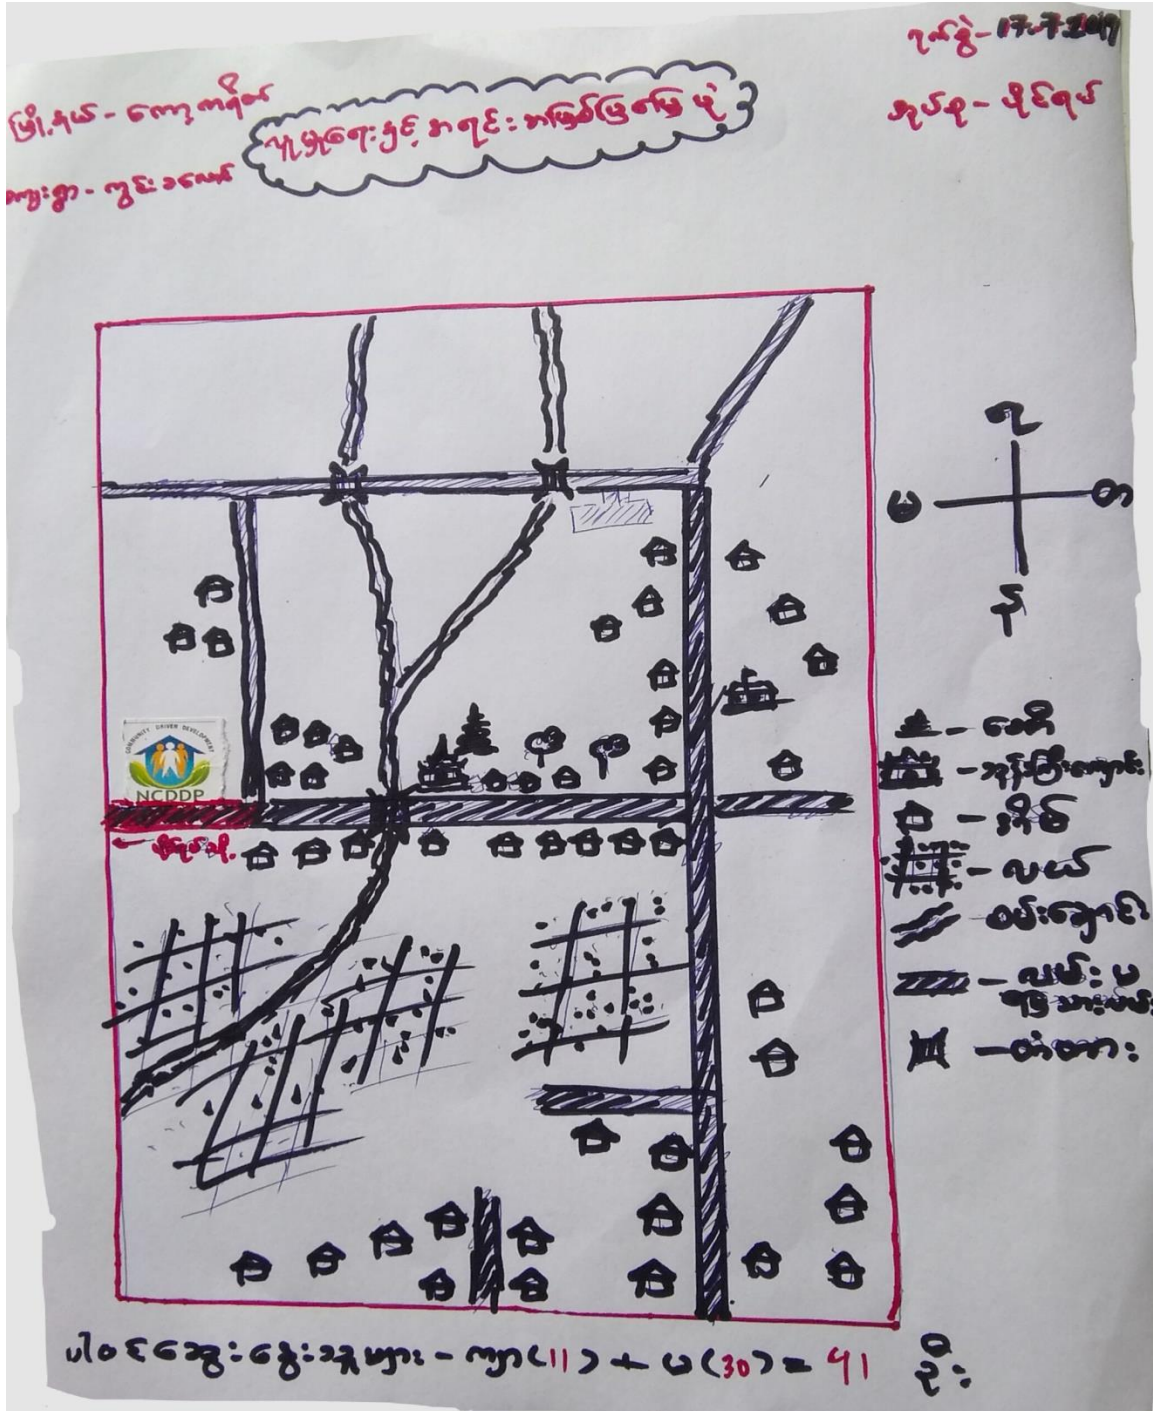 ရက်စွဲ - 17.7.2017
မြို့နယ် - ကော့ကရိတ်
အုပ်စု - ပိုင်ရပ်
လူမှုရေးနှင့် အရင်းအမြစ်ပြမြေပုံ
ကျေးရွာ - ကွင်းခလော်
မြောက်
အ
တ
COMMUNITY DRIVEN DEVELOPMENT
NCDDP
- စေတီ
- ဘုန်းကြီးကျောင်း
- အိမ်
- လယ်
- စမ်းချောင်း
- လမ်းမ
မြေသားလမ်း
- တံတား
ပါဝင်ဆွေးနွေးသူများ - ကျား(11) + မ(30) = 41 ဦး